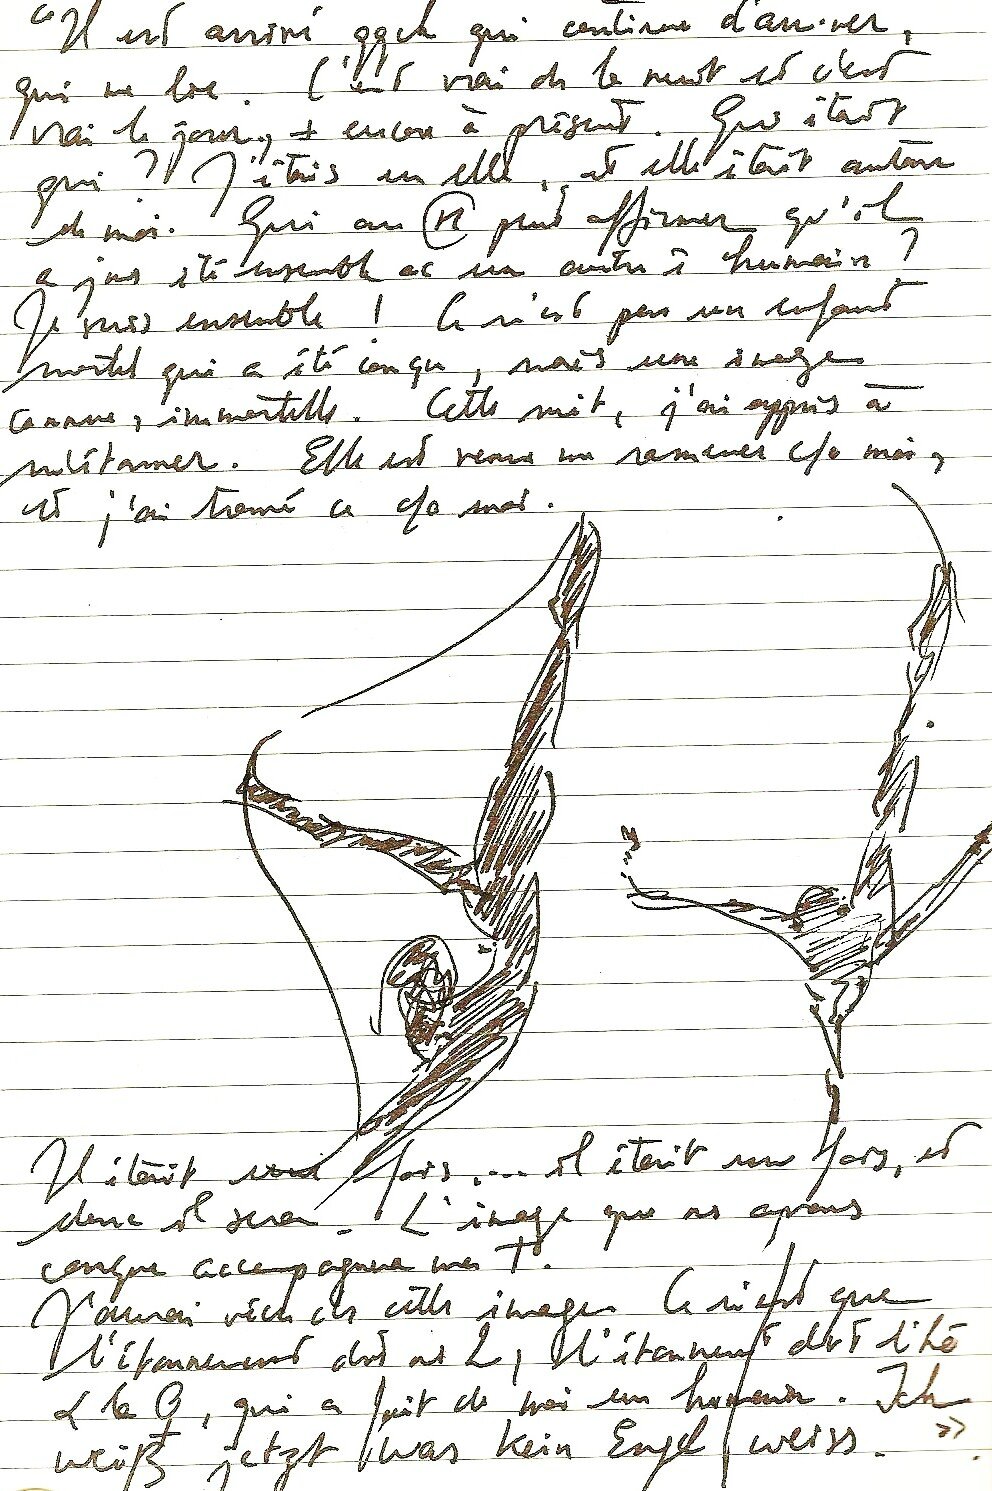 "Il est arrivé qqch qui continue d'arriver,
qui me lie. C'est vrai ds la nuit et c'est
vrai le jour, + encore à présent. Qui était
qui ? J'étais en elle, et elle était autour
de moi. Qui au peut affirmer qu'il
a jms été ensemble ac un autre ê humain ?
Je suis ensemble ! Ce n'est pas un enfant
mortel qui a été conçu, mais une image
commune, immortelle. Cette nuit, j'ai appris à
m'étonner. Elle est venue me ramener c/o moi,
et j'ai trouvé c/o moi.
Il était une fois ... il était une fois, et
donc il sera. L'image que ns avons
conçue accompagnera ma †.
J'aurai vécu ds cette image. Ce n'est que
l'étonnement dvt ns 2, l'étonnement dvt l'ho
& la ♀, qui a fait de moi un humain. Ich
weiß jetzt was kein Engel weiss. »